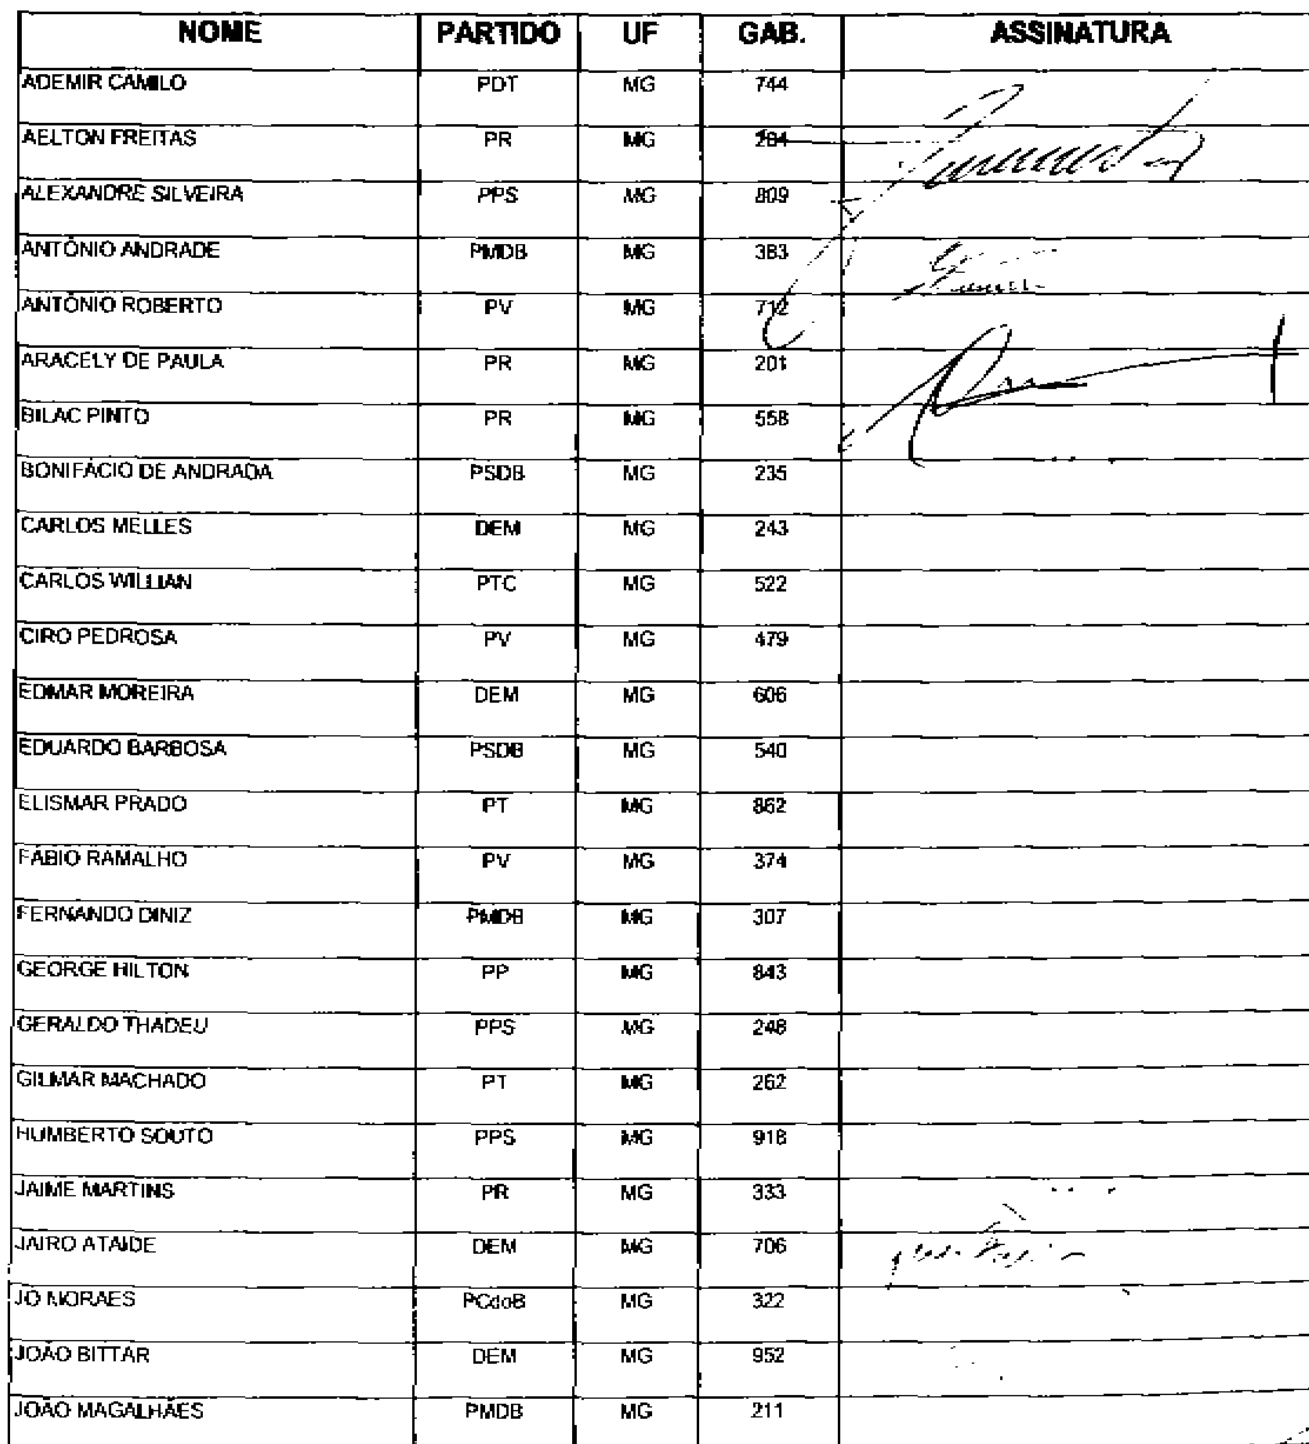 NOME PARTIDO UF GAB. ASSINATURA
ADEMIR CAMILO PDT MG 744
AELTON FREITAS PR MG 204
ALEXANDRE SILVEIRA PPS MG 809
ANTÔNIO ANDRADE PMDB MG 383
ANTÔNIO ROBERTO PV MG 712
ARACELY DE PAULA PR MG 201
BILAC PINTO PR MG 558
BONIFÁCIO DE ANDRADA PSDB MG 235
CARLOS MELLES DEM MG 243
CARLOS WILLIAN PTC MG 522
CIRO PEDROSA PV MG 479
EDMAR MOREIRA DEM MG 606
EDUARDO BARBOSA PSDB MG 540
ELISMAR PRADO PT MG 862
FÁBIO RAMALHO PV MG 374
FERNANDO DINIZ PMDB MG 307
GEORGE HILTON PP MG 843
GERALDO THADEU PPS MG 248
GILMAR MACHADO PT MG 262
HUMBERTO SOUTO PPS MG 918
JAIME MARTINS PR MG 333
JAIRO ATAIDE DEM MG 706
JÔ MORAES PCdoB MG 322
JOÃO BITTAR DEM MG 952
JOÃO MAGALHÃES PMDB MG 211